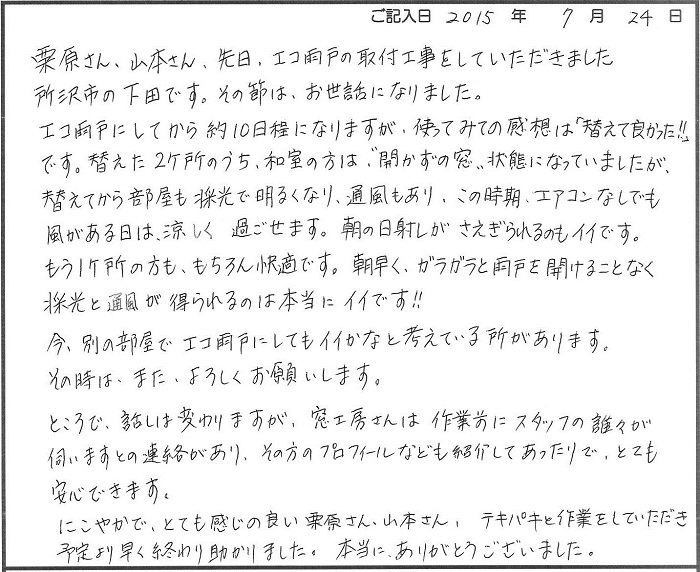 ご記入日 2015 年 7 月 24 日
栗原さん、山本さん、先日、エコ雨戸の取付工事をしていただきました
所沢市の下田です。その節は、お世話になりました。
エコ雨戸にしてから約10日程になりますが、使ってみての感想は「替えて良かった!!
です。替えた2ケ所のうち、和室の方は、"開かずの窓"状態になっていましたが、
替えてから部屋も採光で明るくなり、通風もあり、この時期、エアコンなしでも
風がある日は、涼しく過ごせます。朝の日射しがさえぎられるのもイイです。
もう1ケ所の方も、もちろん快適です。朝早く、ガラガラと雨戸を開けることなく
採光と通風が得られるのは本当にイイです!!
今、別の部屋でエコ雨戸にしてもイイかなと考えている所があります。
その時は、また、よろしくお願いします。
ところで、話しは変わりますが、窓工房さんは作業前にスタッフの誰々が
伺いますとの連絡があり、その方のプロフィールなども紹介してあったりで、とても
安心できます。
にこやかで、とても感じの良い栗原さん、山本さん、テキパキと作業をしていただき
予定より早く終わり助かりました。本当に、ありがとうございました。